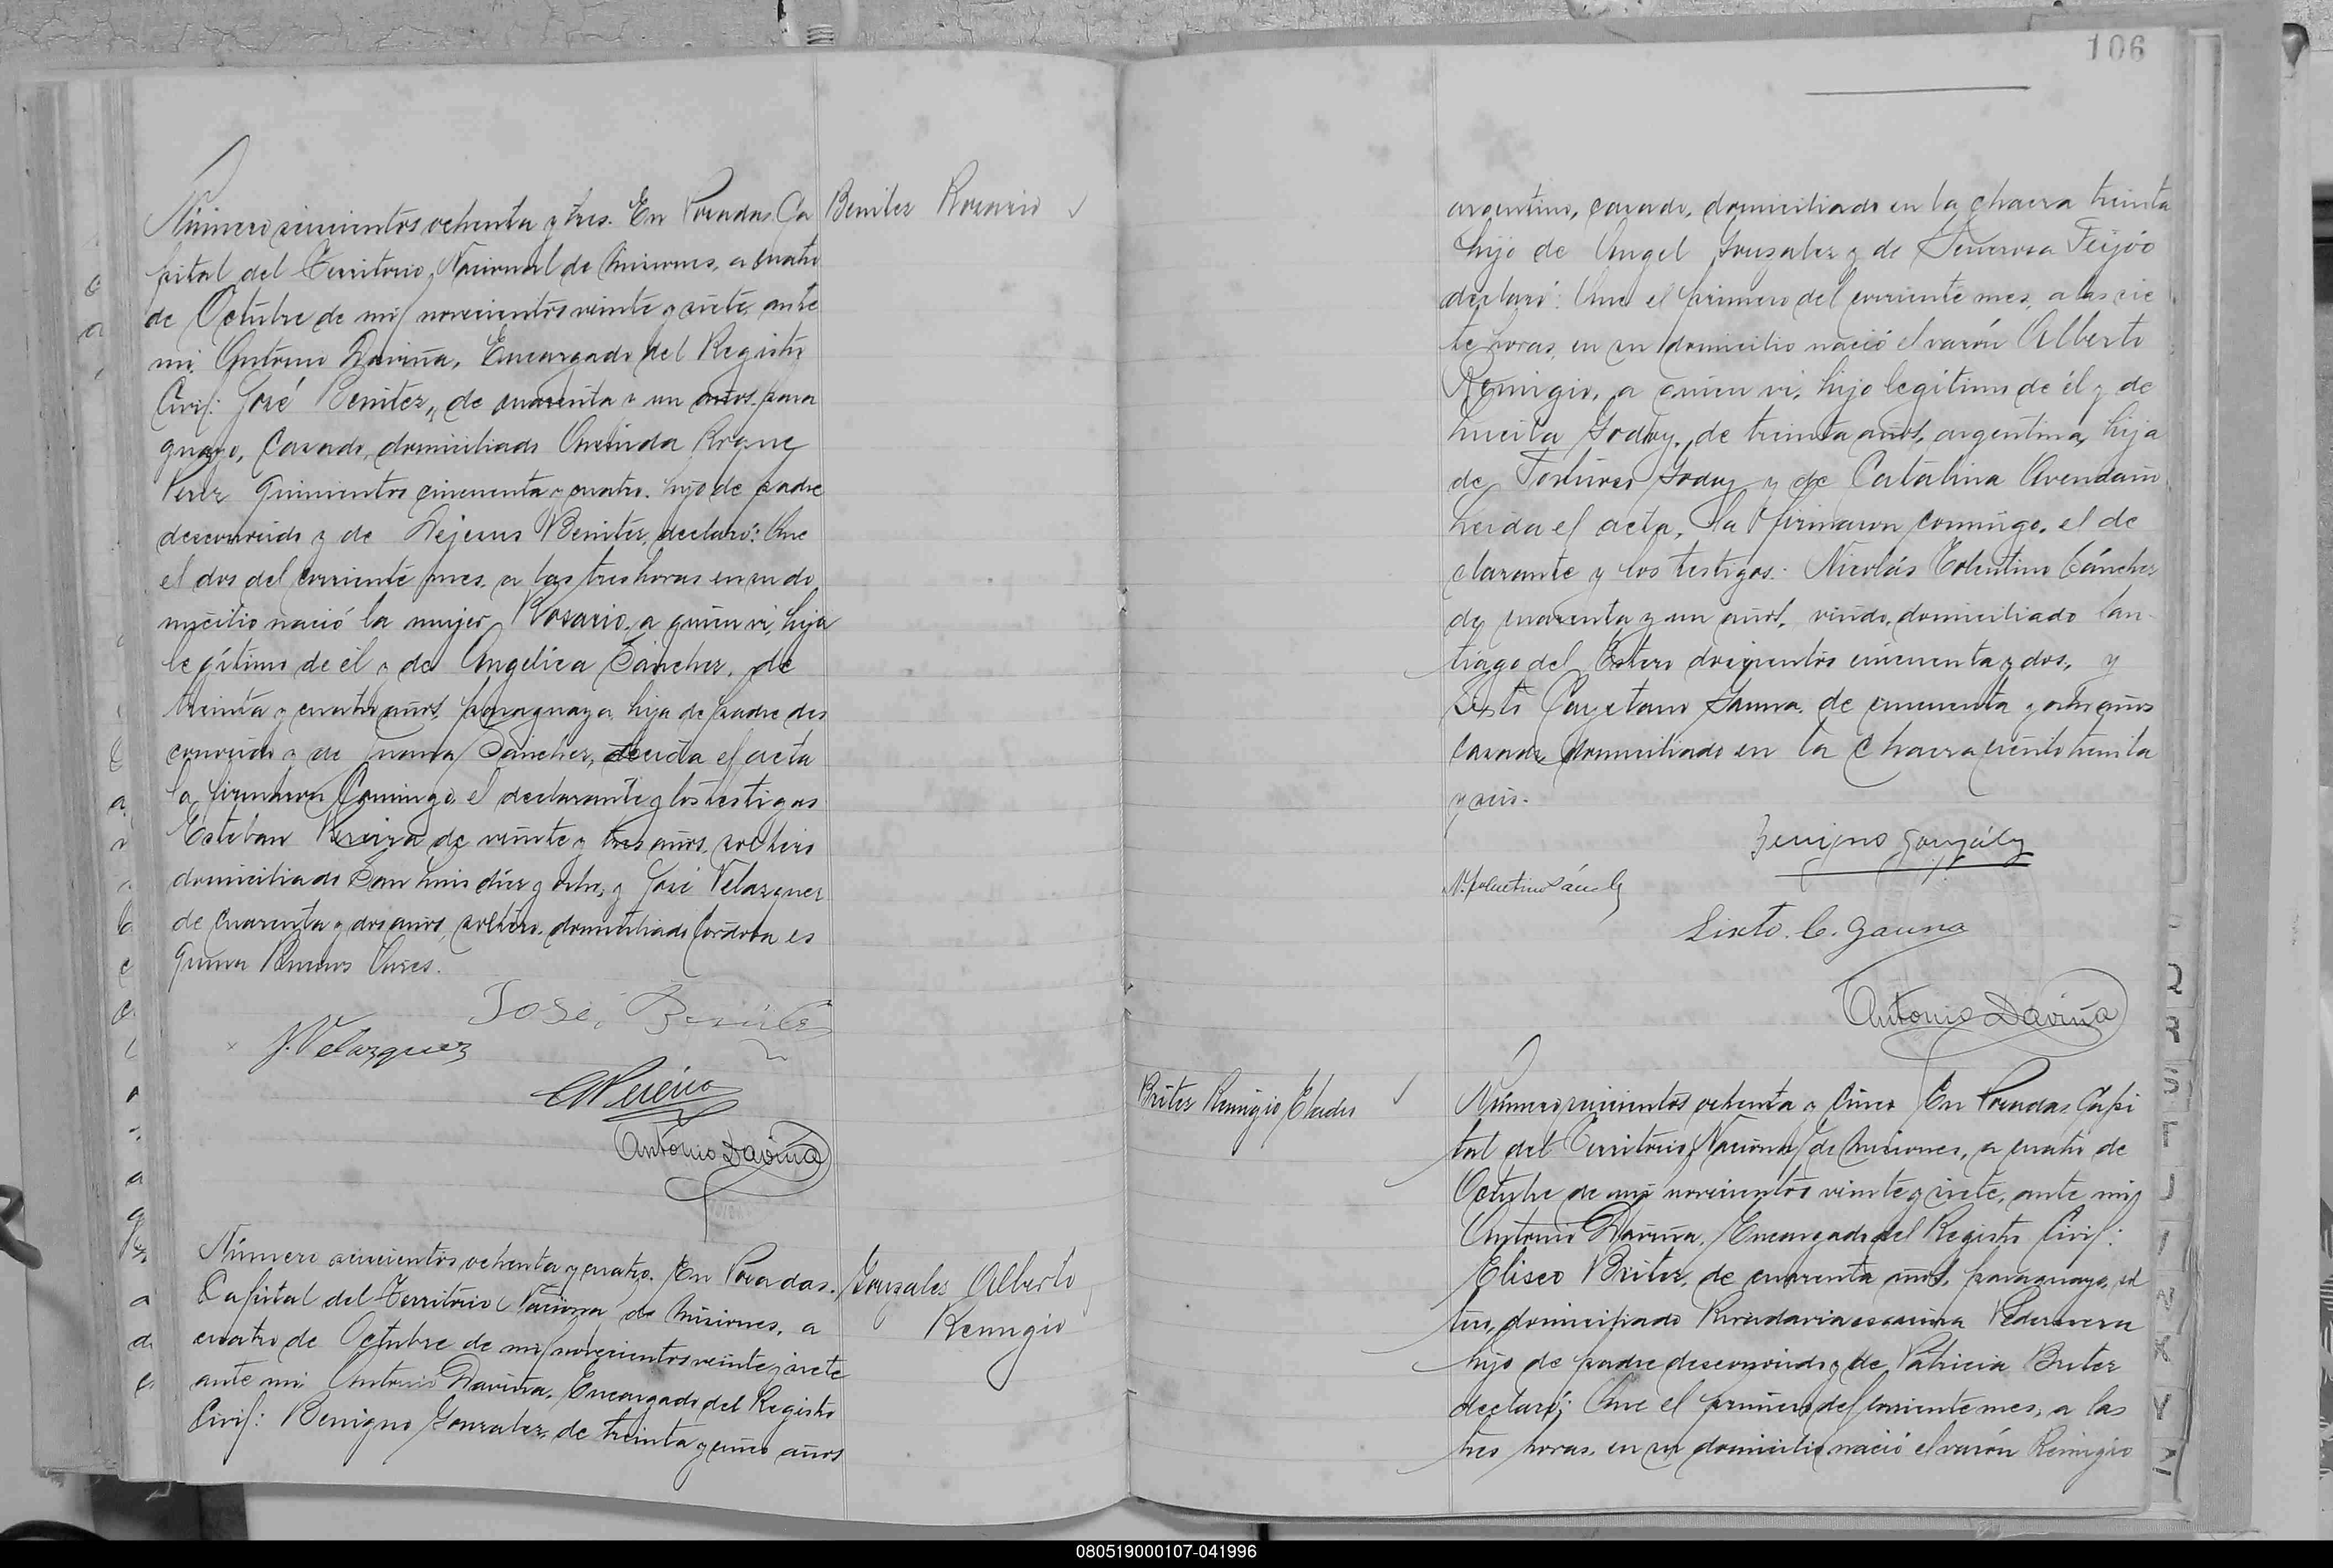 Número seiscientos ochenta y tres. En Posadas, Ca
pital del Territorio Nacional de Misiones, a cuatro
de Octubre de mil novecientos veinte y siete, ante
mi, Antonio Daviña, Encargado del Registro
Civil: José Benitez, de cuarenta y un años, para
guayo, casado, domiciliado Avenida Roque
Perez quinientos cincuenta y cuatro, hijo de padre
desconocido y de Dejesus Benitez, declaró: Que
el dos del corriente mes, a las tres horas en su do
micilio nació la mujer Rosario, a quien vi, hija
legítima de él y de Angélica Sánchez, de
treinta y cuatro años, paraguaya, hija de padre des
conocido y de Juana Sánchez, leida el acta
la firmaron conmigo, el declarante y los testigos
Esteban Pereira de veinte y tres años, soltero
domiciliado San Luis diez y ocho, y José Velazquez
de cuarenta y dos años, soltero, domiciliado Córdoba es
quina Buenos Aires.
José Benitez
J. Velazquez
E Pereira
Antonio Daviña
Benitez Rosario
Número seiscientos ochenta y cuatro. En Posadas,
Capital del Territorio Nacional de Misiones, a
cuatro de Octubre de mil novecientos veinte y siete
ante mi, Antonio Daviña, Encargado del Registro
Civil: Benigno Gonzalez, de treinta y cinco años
Gonzales Alberto
Remigio
106
argentino, casado, domiciliado en la chacra treinta
hijo de Angel Gonzalez y de Generosa Feijóo
declaró: Que el primero del corriente mes, a las sie
te horas, en su domicilio nació el varón Alberto
Remigio, a quien vi, hijo legítimo de él y de
Lucila Godoy, de treinta años, argentina, hija
de Godoy y de Catalina Avendaño
Leida el acta, la firmaron conmigo, el de
clarante y los testigos: Nicolás Tolentino Sánchez
de cuarenta y un años, viudo, domiciliado San
tiago del Estero doscientos cincuenta y dos, y
Sixto Cayetano Gauna, de cincuenta y ocho años
casado, domiciliado en la Chacra ciento treinta
y seis.
Benigno González
N. Tolentino Sánchez
Sixto C. Gauna
Antonio Daviña
Britez Remigio Eladio
Número seiscientos ochenta y cinco. En Posadas, Capi
tal del Territorio Nacional de Misiones, a cuatro de
Octubre de mil novecientos veinte y siete, ante mi,
Antonio Daviña, Encargado del Registro Civil:
Eliseo Britez, de cuarenta años, paraguayo, sol
tero, domiciliado Rivadavia esquina Pedernera
hijo de padre desconocido y de Patricia Britez
declaró: Que el primero del corriente mes, a las
tres horas, en su domicilio nació el varón Remigio
080519000107-041996